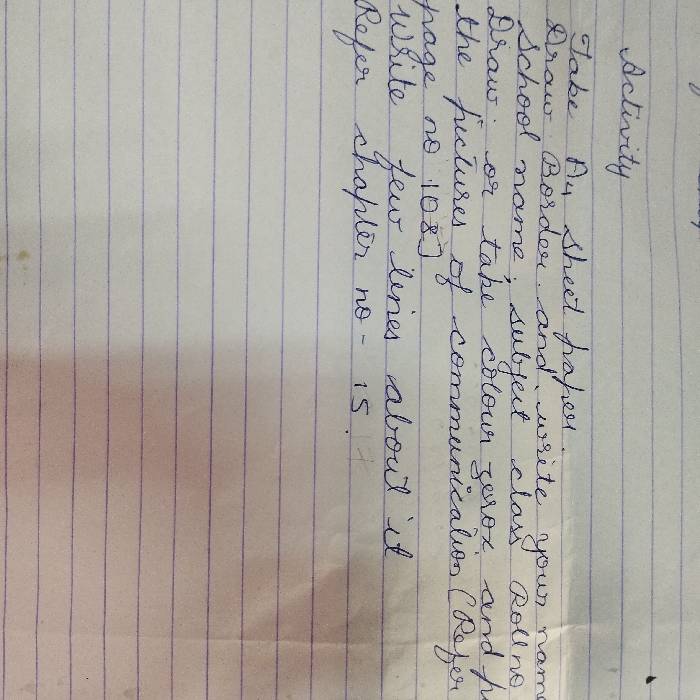 Activity
Take A4 sheet paper
Draw Border and write your nam
School name, subject class Roll no
Draw or take colour zerox and p
the pictures of communication (Refer
page no 108)
Write few lines about it
Refer chapter no - 15